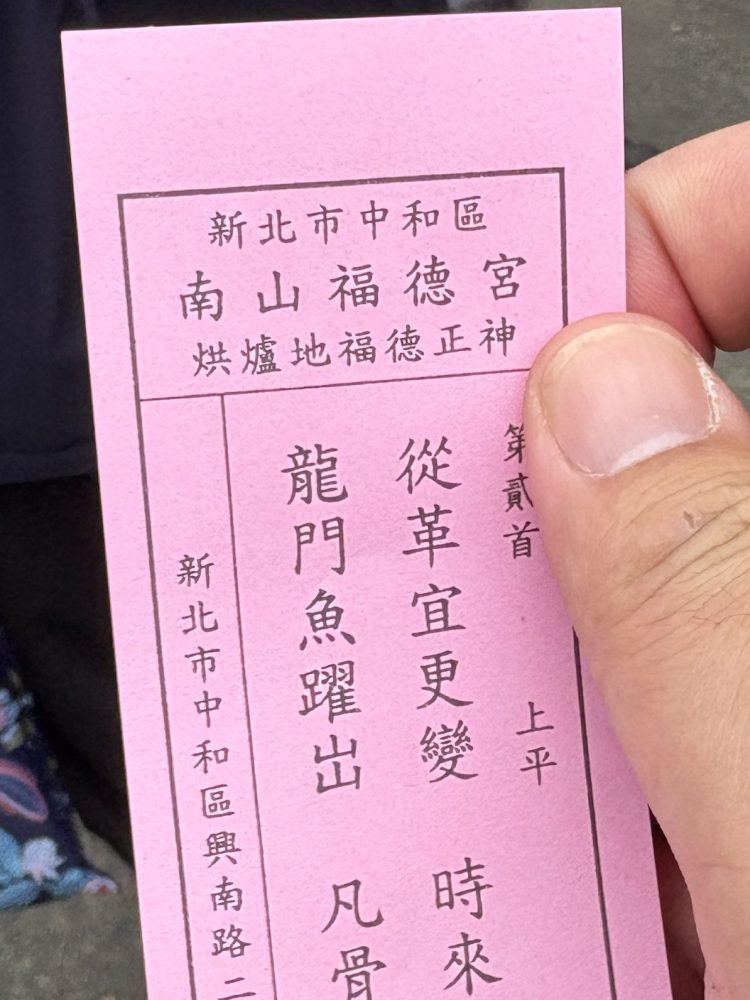 新北市中和區
南山福德宮
烘爐地福德正神
第貳首 上平
從革宜更變 時來
龍門魚躍出 凡骨
新北市中和區興南路二